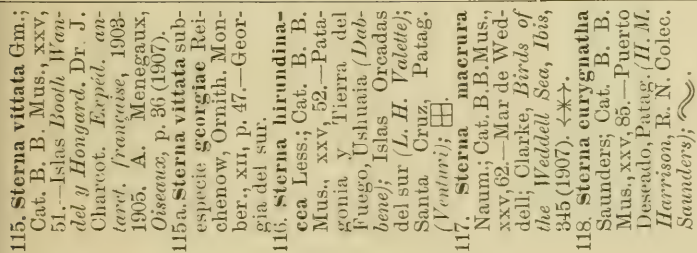 115. Sterna vittata Gm.;
Cat. B. B. Mus., xxv,
51.—Islas Booth Wan-
del y Hongard. Dr. J.
Charcot. Expéd. an-
tarct. française, 1903-
1905. A. Menegaux,
Oiseaux, p. 36 (1907).
115a. Sterna vittata sub-
especie georgiae Rei-
chenow, Ornith. Mon-
ber., xii, p. 47.—Geor-
gia del sur.
116. Sterna hirundina-
cea Less.; Cat. B. B.
Mus., xxv, 52.—Pata-
gonia y Tierra del
Fuego, Ushuaia (Dab-
bene); Islas Orcadas
del sur (L. H. Valette);
Santa Cruz, Patag.
(Venturi);
117. Sterna macrura
Naum.; Cat. B.B.Mus.,
xxv,62.—Mar de Wed-
dell; Clarke, Birds of
the Weddell Sea, Ibis,
345 (1907).
118. Sterna curygnatha
Saunders; Cat. B. B.
Mus., xxv, 85.—Puerto
Deseado, Patag. (H. M.
Harrison, R. N. Colec.
Saunders);